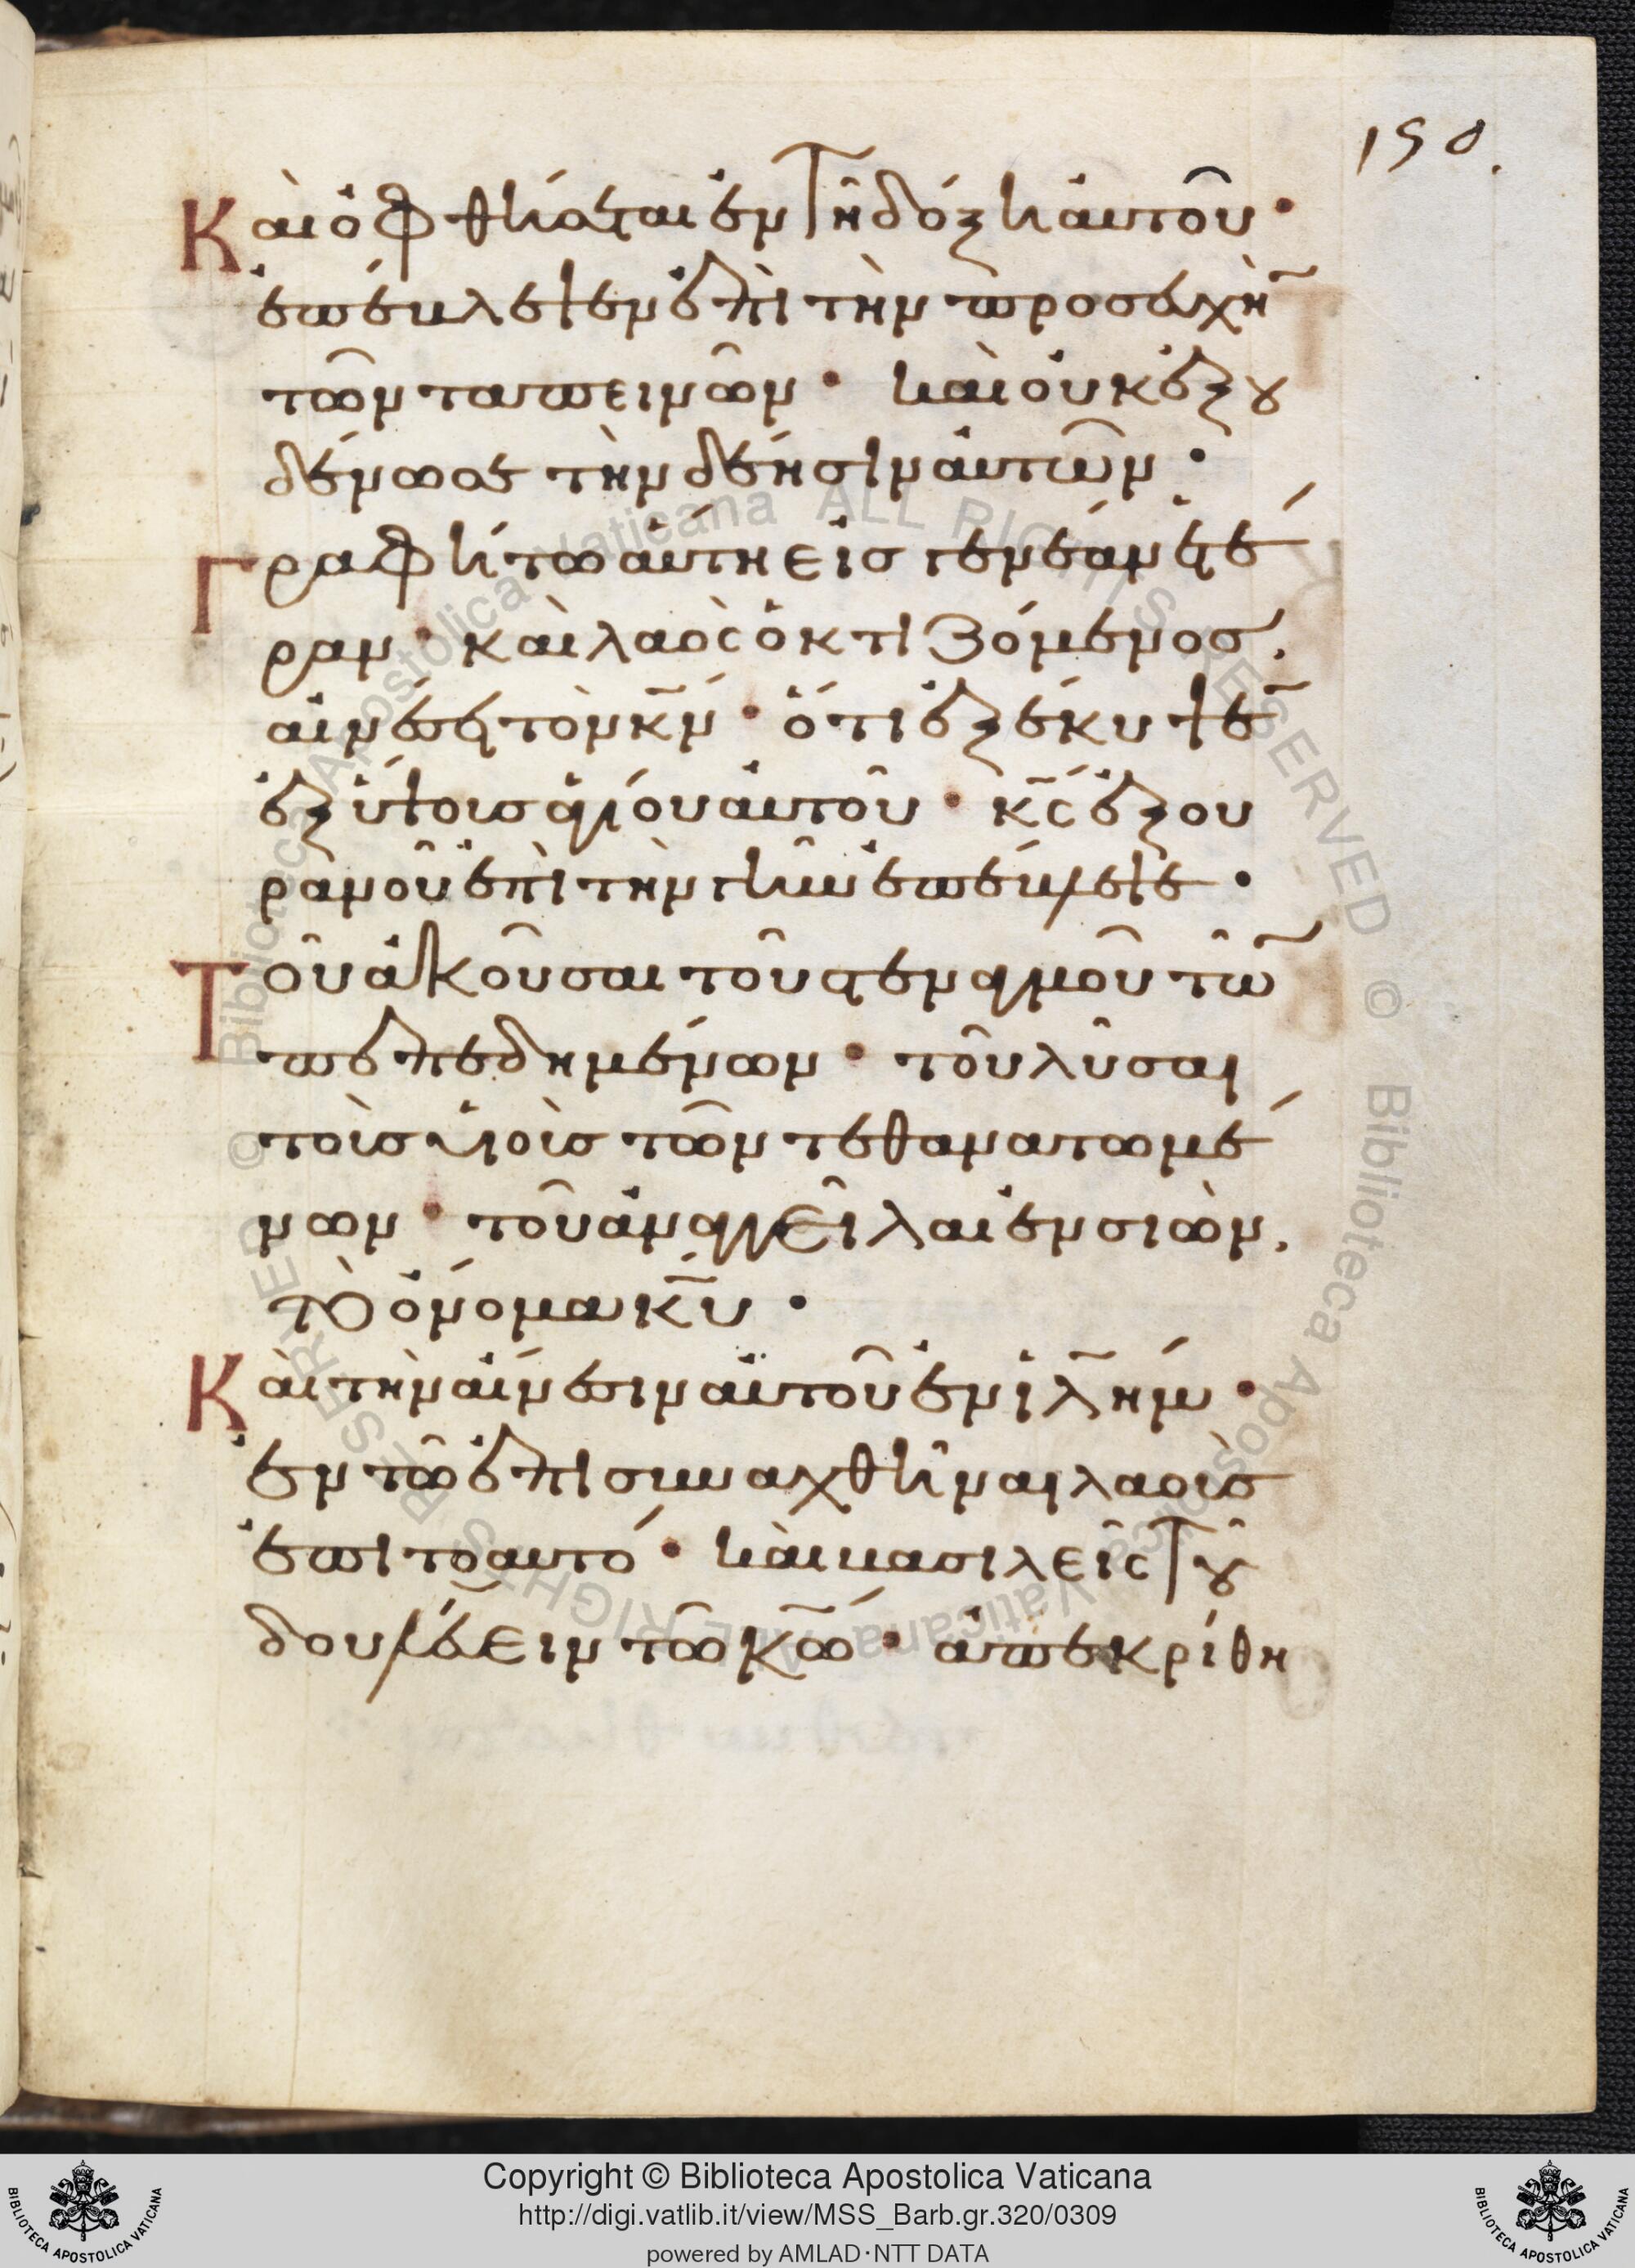 150.
Καὶ ὀφθήσεται ἐν τῆ δόξη αὐτοῦ·
ἐπέβλεψεν ἐπὶ τὴν προσευχὴ̄
τῶν ταπεινῶν· καὶ οὐκ ἐξου
δένωσε τὴν δέησιν αὐτῶν·
Γραφήτω αὕτη εἰς γενεὰν ἑτέ
ραν· καὶ λαὸς ὁ κτιζόμενος,
αἰνέσει τὸν κ̅ν̅· ὅτι ἐξέκυψε̄
ἐξ ὕψους ἁγίου αὐτοῦ· κ̅ς̅ ἐξ οὐ
ρανοῦ ἐπὶ τὴν γῆν ἐπέβλεψε·
Τοῦ ἀκοῦσαι τοῦ στεναγμοῦ τῶ̄
πεπεδημένων· τοῦ λῦσαι
τοὺς υἱοὺς τῶν τεθανατωμέ
νων· τοῦ ἀναγγεῖλαι ἐν σιὼν,
τὸ ὄνομα κ̅υ̅·
Καὶ τὴν αἴνεσιν αὐτοῦ ἐν ἰλ̅ήμ·
ἐν τῶ ἐπισυναχθῆναι λαοὺς
ἐπιτοαυτό· καὶ βασιλεῖς τοῦ
δουλεύειν τῶ κ̅ω̅· ἀπεκρίθη
Copyright © Biblioteca Apostolica Vaticana
http://digi.vatlib.it/view/MSS_Barb.gr.320/0309
powered by AMLAD·NTT DATA
BIBLIOTECA APOSTOLICA VATICANA
BIBLIOTECA APOSTOLICA VATICANA
© Biblioteca Apostolica Vaticana ALL RIGHTS RESERVED © Biblioteca Apostolica Vaticana ALL RIGHTS RESERVED